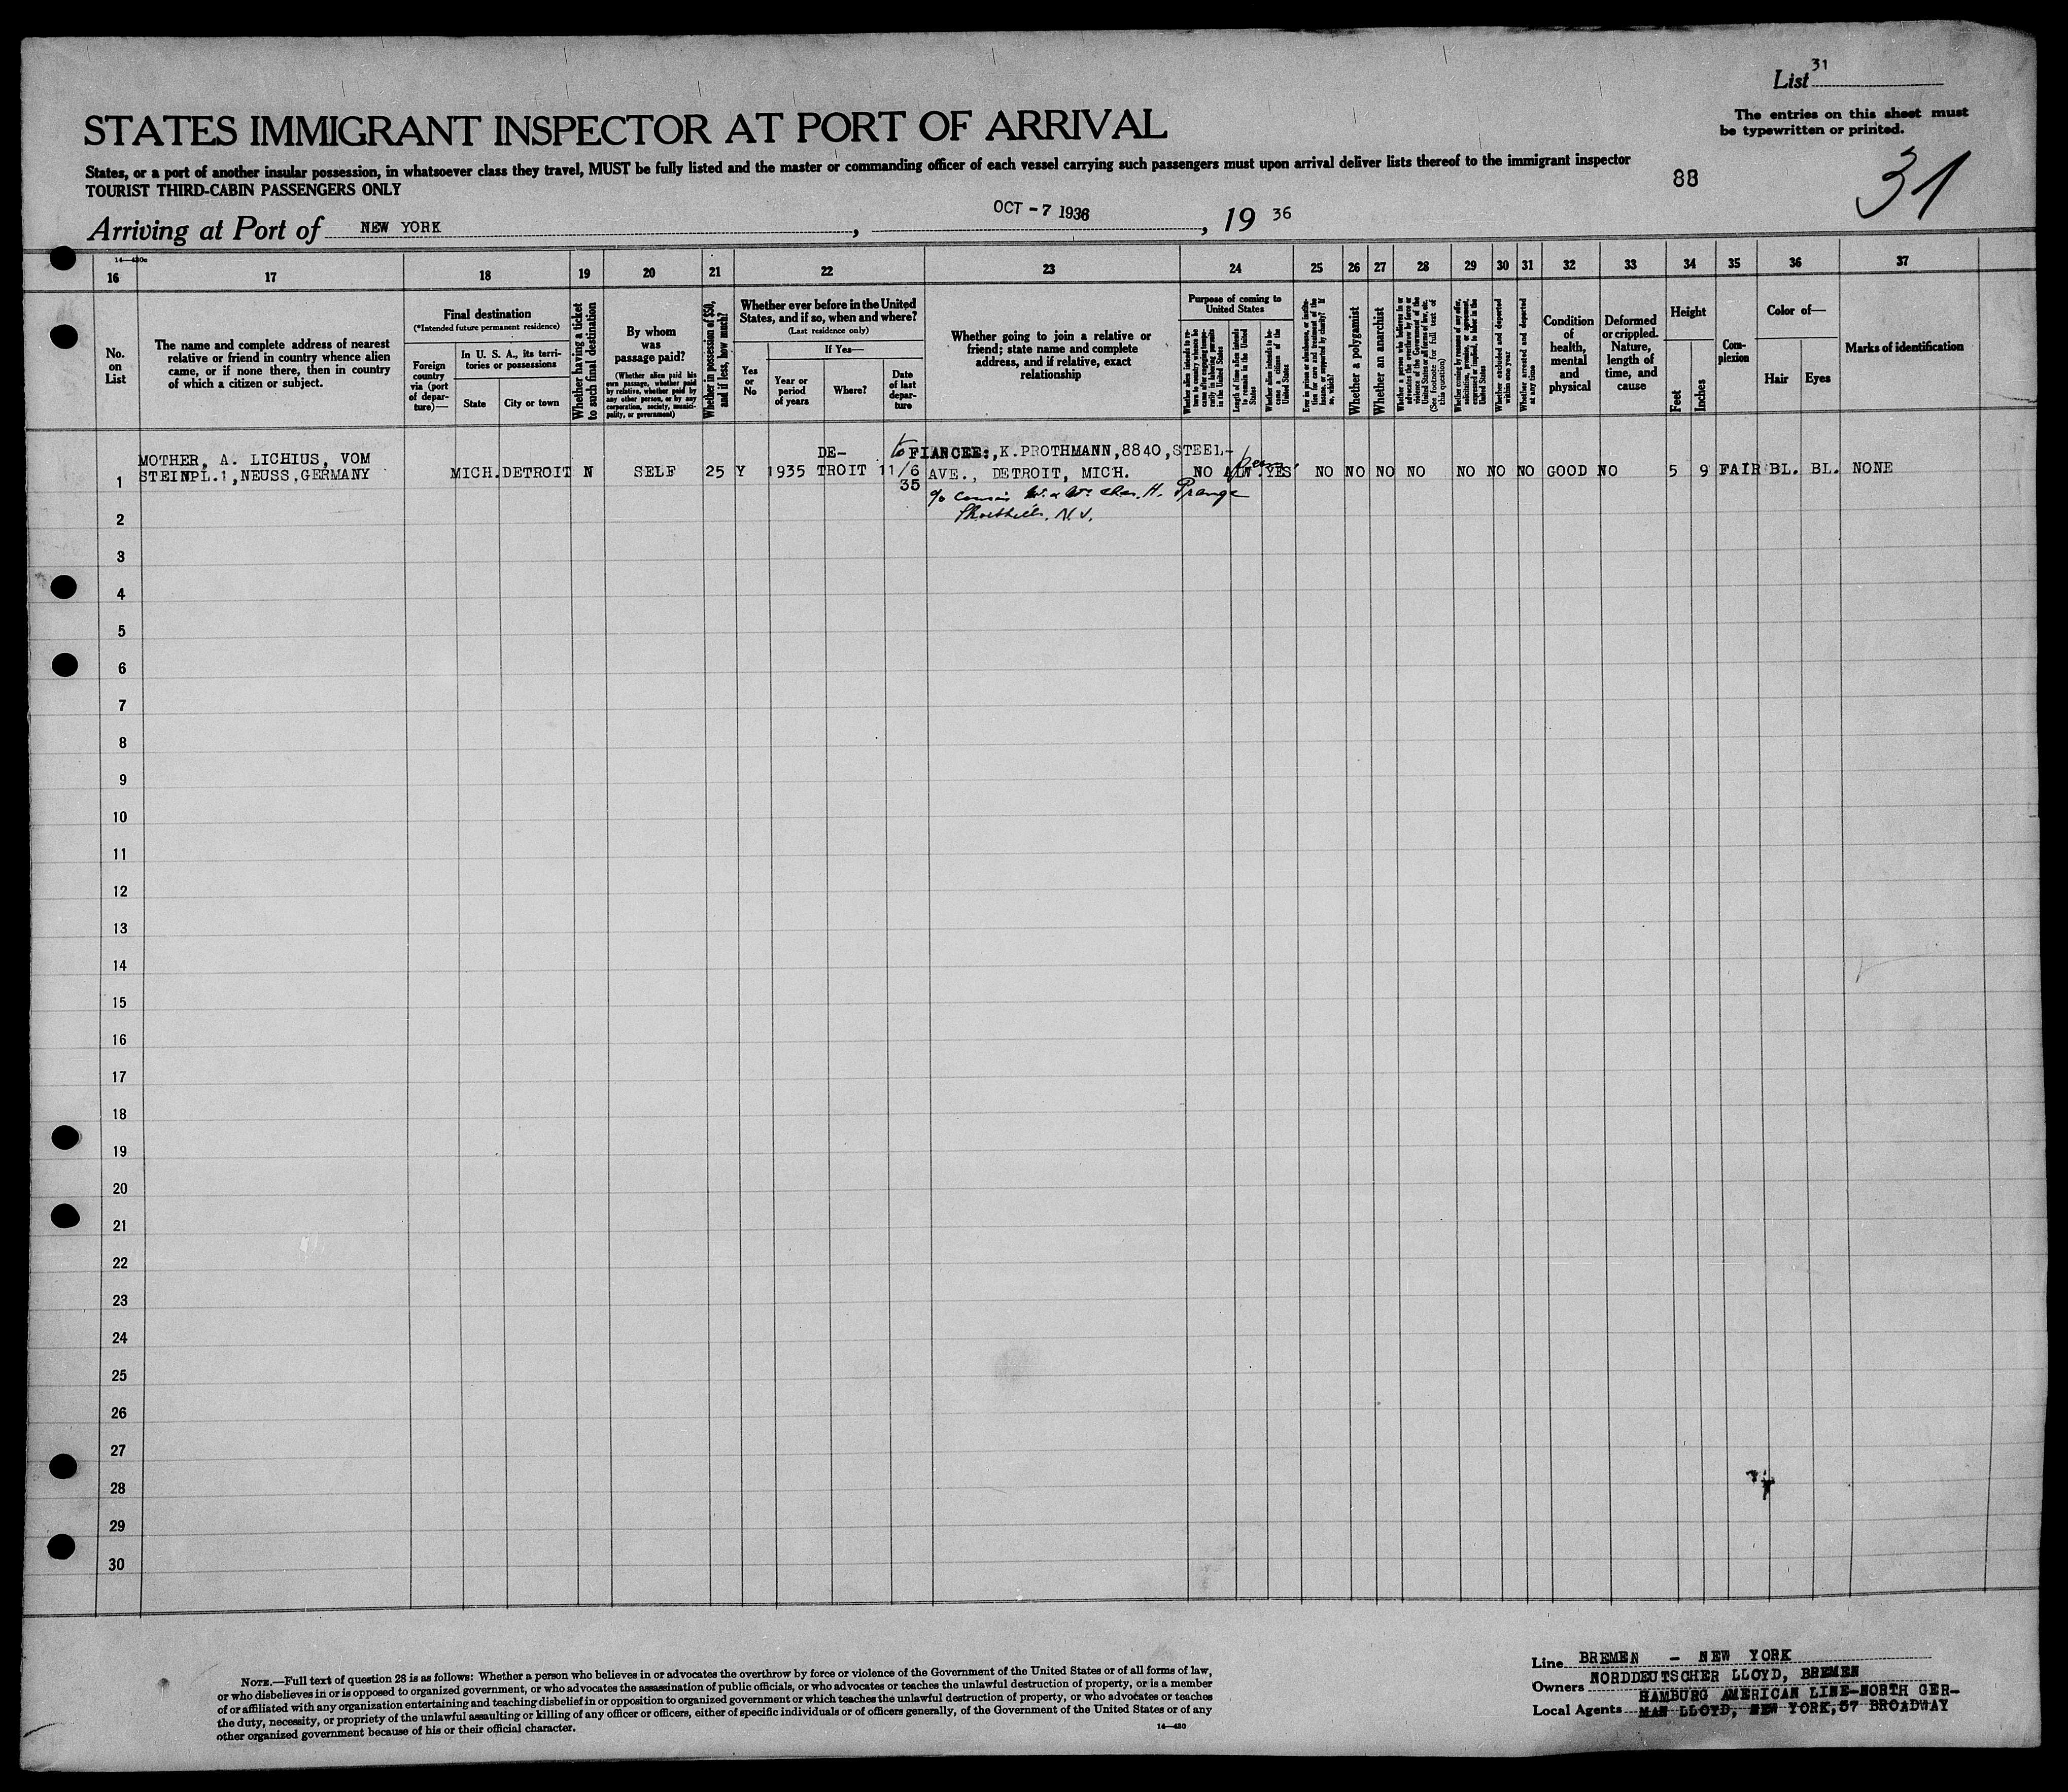 List 31
The entries on this sheet must
be typewritten or printed.
STATES IMMIGRANT INSPECTOR AT PORT OF ARRIVAL
States, or a port of another insular possession, in whatsoever class they travel, MUST be fully listed and the master or commanding officer of each vessel carrying such passengers must upon arrival deliver lists thereof to the immigrant inspector
TOURIST THIRD-CABIN PASSENGERS ONLY
88
31
Arriving at Port of NEW YORK, OCT -7 1936, 19 36
16 17 18 19 20 21 22 23 24 25 26 27 28 29 30 31 32 33 34 35 36 37
No.
on
List
The name and complete address of nearest
relative or friend in country whence alien
came, or if none there, then in country
of which a citizen or subject.
Final destination
(*Intended future permanent residence)
Foreign
country
via (port
of depar-
ture)—
In U. S. A., its terri-
tories or possessions
State
City or town
Whether having a ticket
to such final destination
By whom
was
passage paid?
(Whether alien paid his
own passage, whether paid
by relative, whether paid by
any other person, or by any
corporation, society, munici-
pality, or government)
Whether in possession of $50,
and if less, how much?
Whether ever before in the United
States, and if so, when and where?
(Last residence only)
Yes
or
No
If Yes—
Year or
period
of years
Where?
Date
of last
depar-
ture
Whether going to join a relative or
friend; state name and complete
address, and if relative, exact
relationship
Purpose of coming to
United States
Length of time alien intends
to remain in the United
States
Whether alien intends to be-
come a citizen of the
United States
Whether a polygamist
Whether an anarchist
(See footnote for full text of
this question)
Whether excluded and deported
within one year
Whether arrested and deported
at any time
Condition
of
health,
mental
and
physical
Deformed
or crippled.
Nature,
length of
time, and
cause
Height
Feet
Inches
Com-
plexion
Color of—
Hair
Eyes
Marks of identification
MOTHER, A. LICHIUS, VOM
STEINPL.1,NEUSS,GERMANY
MICH. DETROIT N SELF 25 Y 1935
DE-
TROIT
11/6
35
to FIANCEE:,K.PROTHMANN,8840,STEEL-
AVE., DETROIT, MICH.
c/o cousin Chas. H. Prange
N.J.
NO YES NO NO NO NO NO NO NO GOOD NO 5 9 FAIR BL. BL. NONE
1
2
3
4
5
6
7
8
9
10
11
12
13
14
15
16
17
18
19
20
21
22
23
24
25
26
27
28
29
30
NOTE.—Full text of question 28 is as follows: Whether a person who believes in or advocates the overthrow by force or violence of the Government of the United States or of all forms of law,
or who disbelieves in or is opposed to organized government, or who advocates the assassination of public officials, or who advocates or teaches the unlawful destruction of property, or is a member
of or affiliated with any organization entertaining and teaching disbelief in or opposition to organized government or which teaches the unlawful destruction of property, or who advocates or teaches
the duty, necessity, or propriety of the unlawful assaulting or killing of any officer or officers, either of specific individuals or of officers generally, of the Government of the United States or of any
other organized government because of his or their official character.
14—430
Line BREMEN - NEW YORK
Owners NORDDEUTSCHER LLOYD, BREMEN
Local Agents HAMBURG AMERICAN LINE-NORTH GER-
MAN LLOYD, NEW YORK, 57 BROADWAY